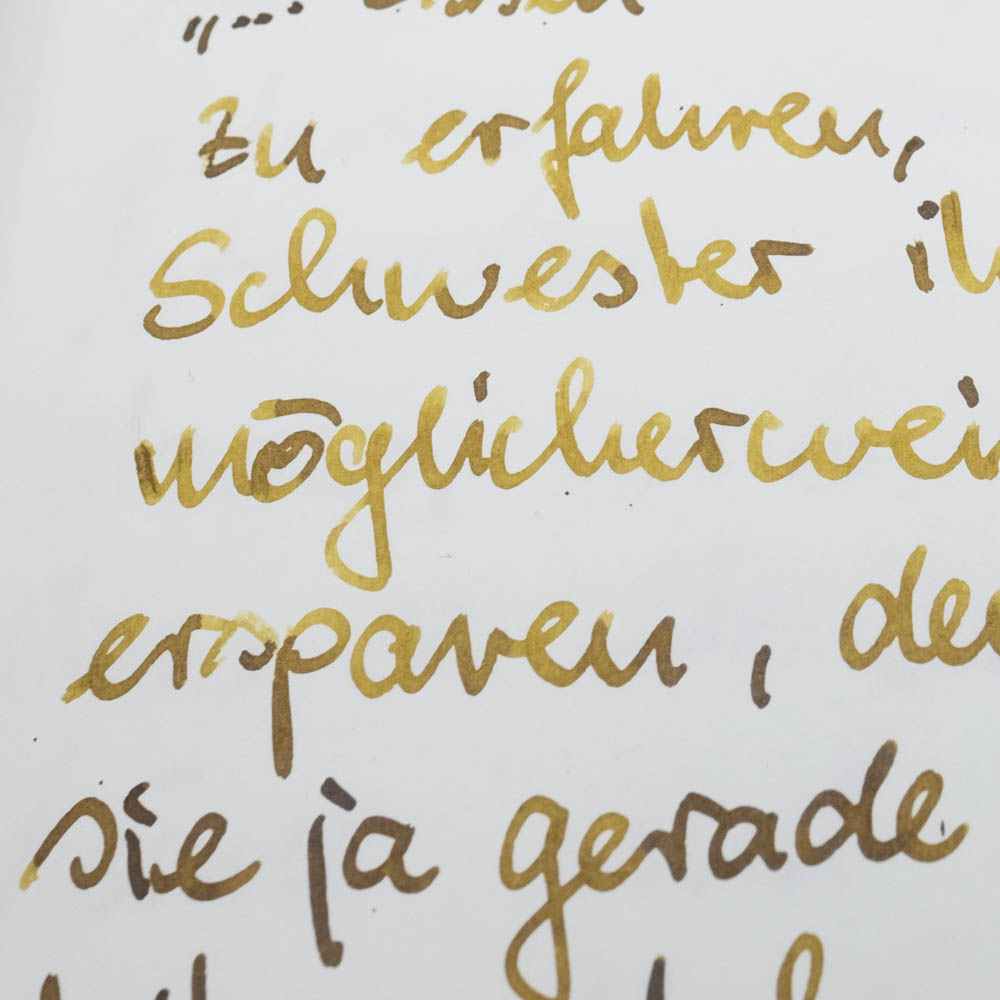 zu erfahren,
Schwester
möglicherwei
ersparen,
sie ja gerade